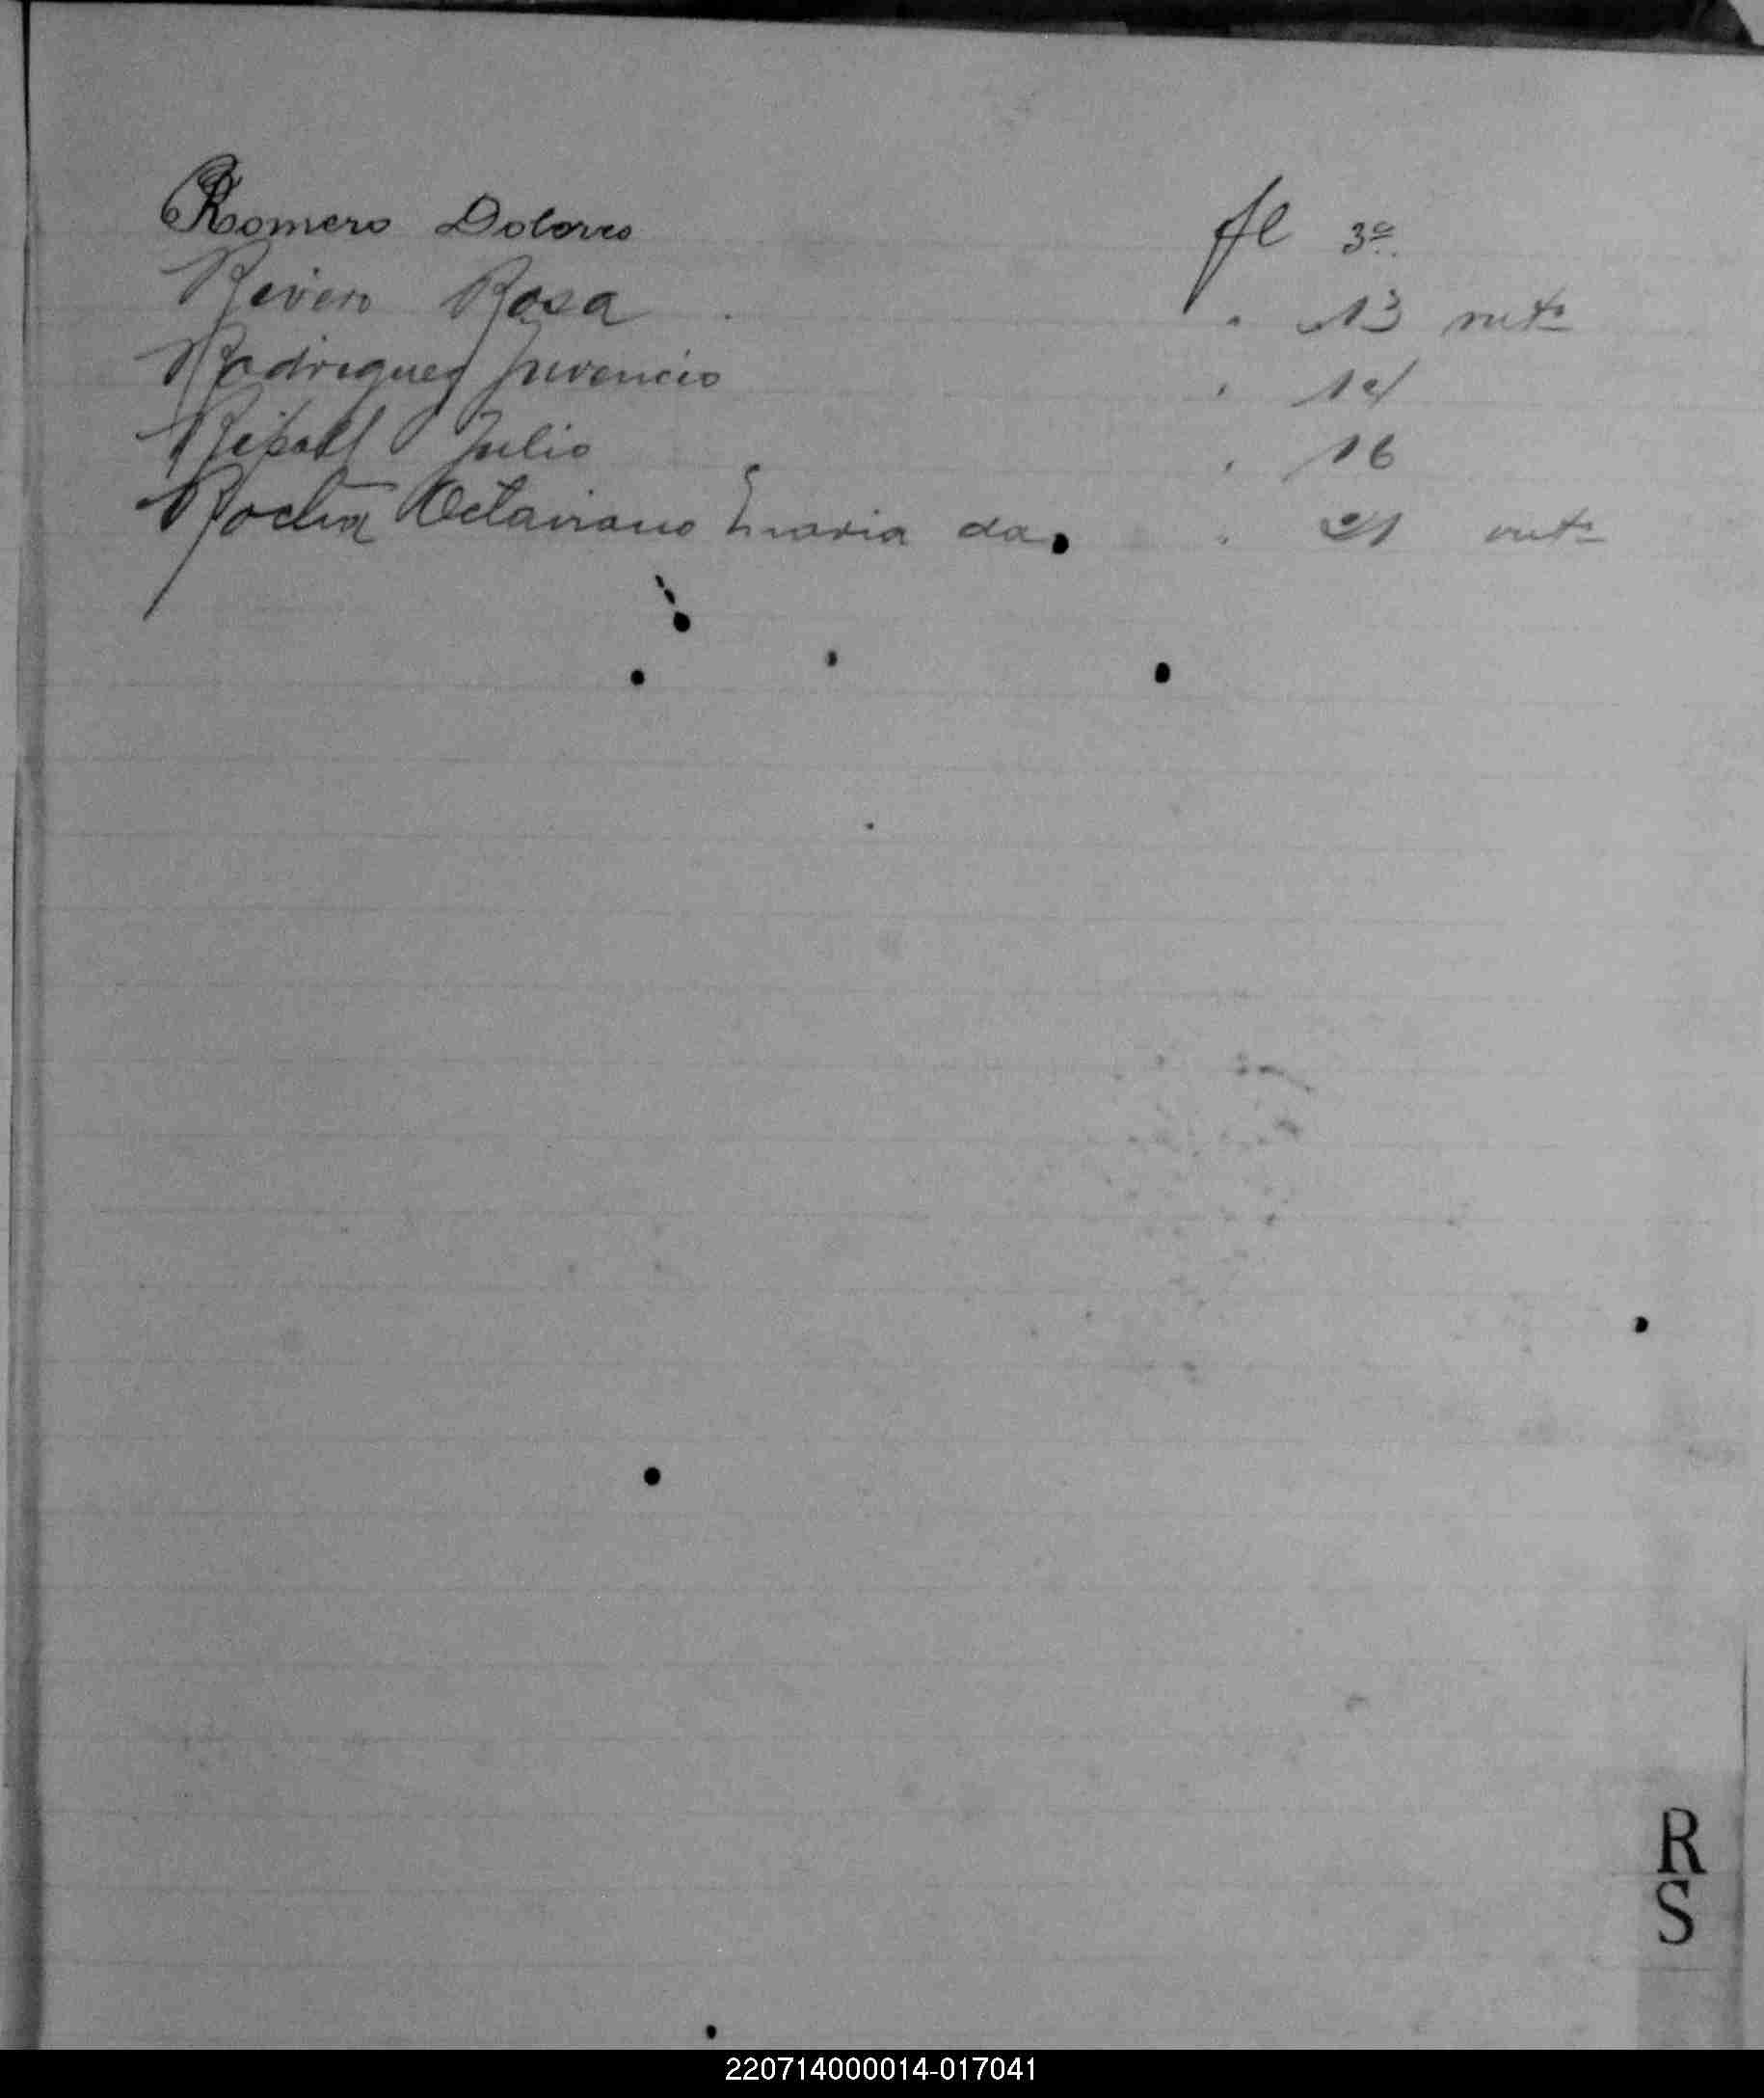 Romero Dolores fl 3º
Rivero Rosa " 13 vutº
Rodriguez Juvencio " 14
Ripoll Julio " 16
Rocha Octaviano Maria da " 21 vutº
R
S
220714000014-017041